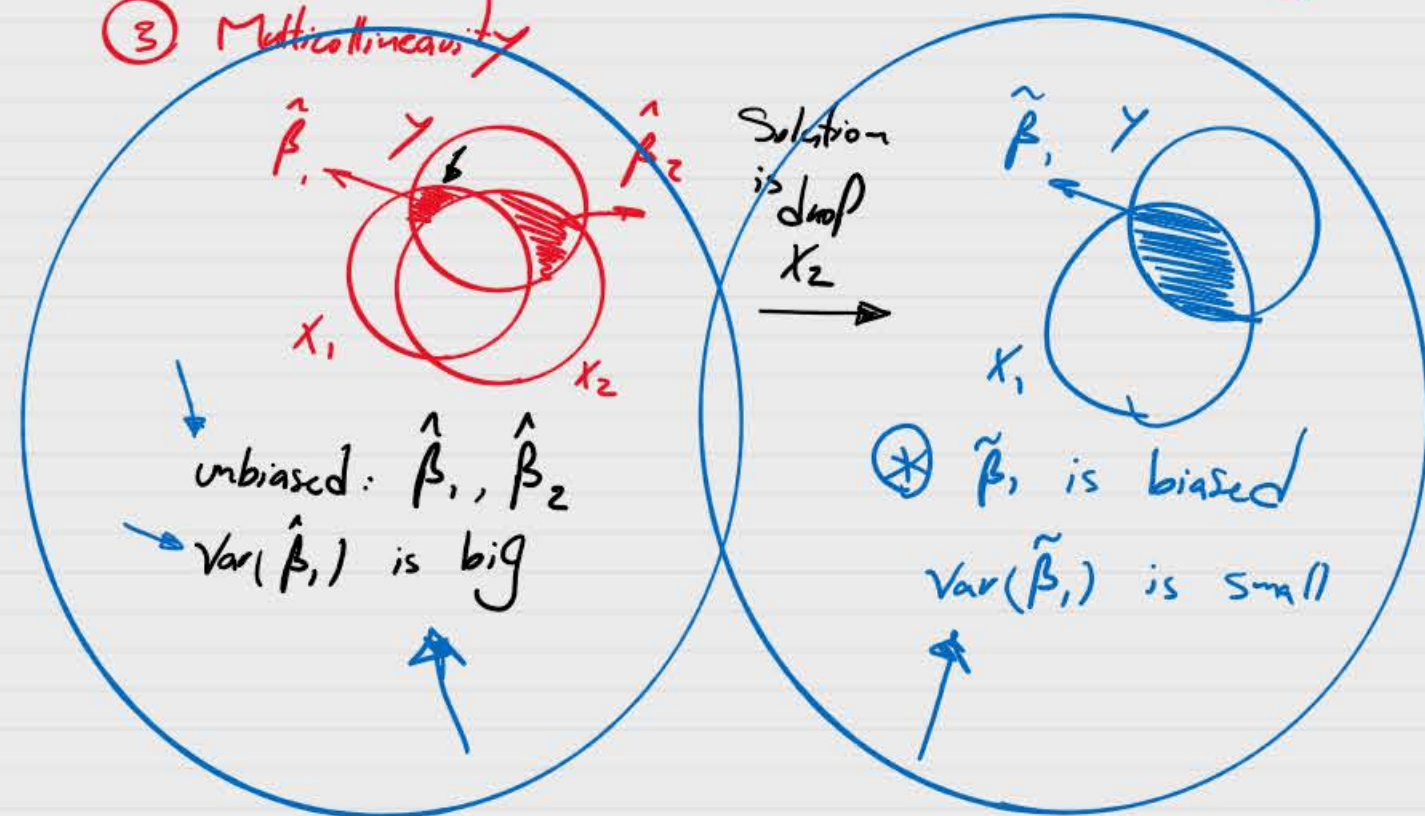 ③ Multicollinearity
β̂₁ Y β̂₂
X₁ X₂
unbiased: β̂₁, β̂₂
Var(β̂₁) is big
Solution
is drop
X₂
β̃₁ Y
X₁
⊛ β̃₁ is biased
Var(β̃₁) is small